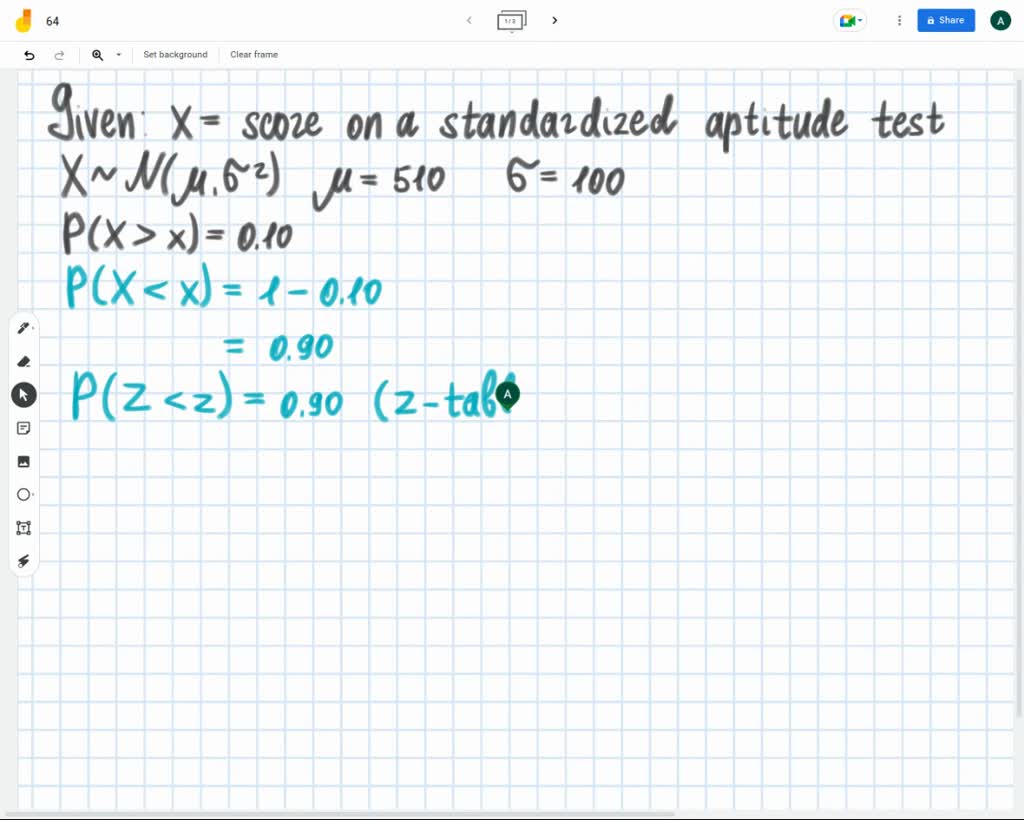 64
1/3
Share
A
Set background
Clear frame
Given: X = score on a standardized aptitude test
X ~ N(μ, σ²) μ = 510 σ = 100
P(X > x) = 0.10
P(X < x) = 1 - 0.10
= 0.90
P(Z < z) = 0.90 (z-tabl
A